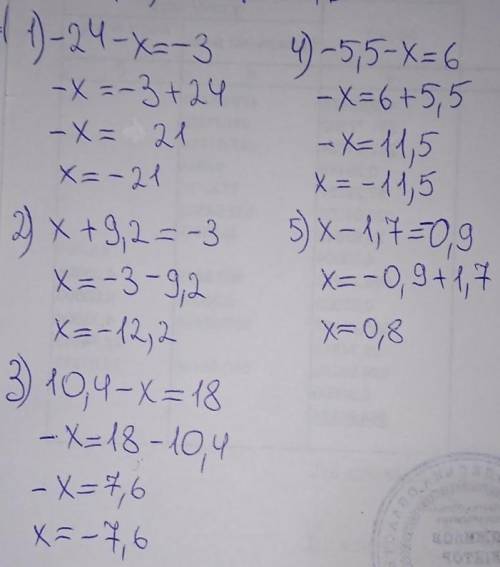 1) -24-x=-3
-x=-3+24
-x= 21
x=-21
2) x+9,2=-3
x=-3-9,2
x=-12,2
3) 10,4-x=18
-x=18-10,4
-x=7,6
x=-7,6
4) -5,5-x=6
-x=6+5,5
-x=11,5
x=-11,5
5) x-1,7=-0,9
x=-0,9+1,7
x=0,8